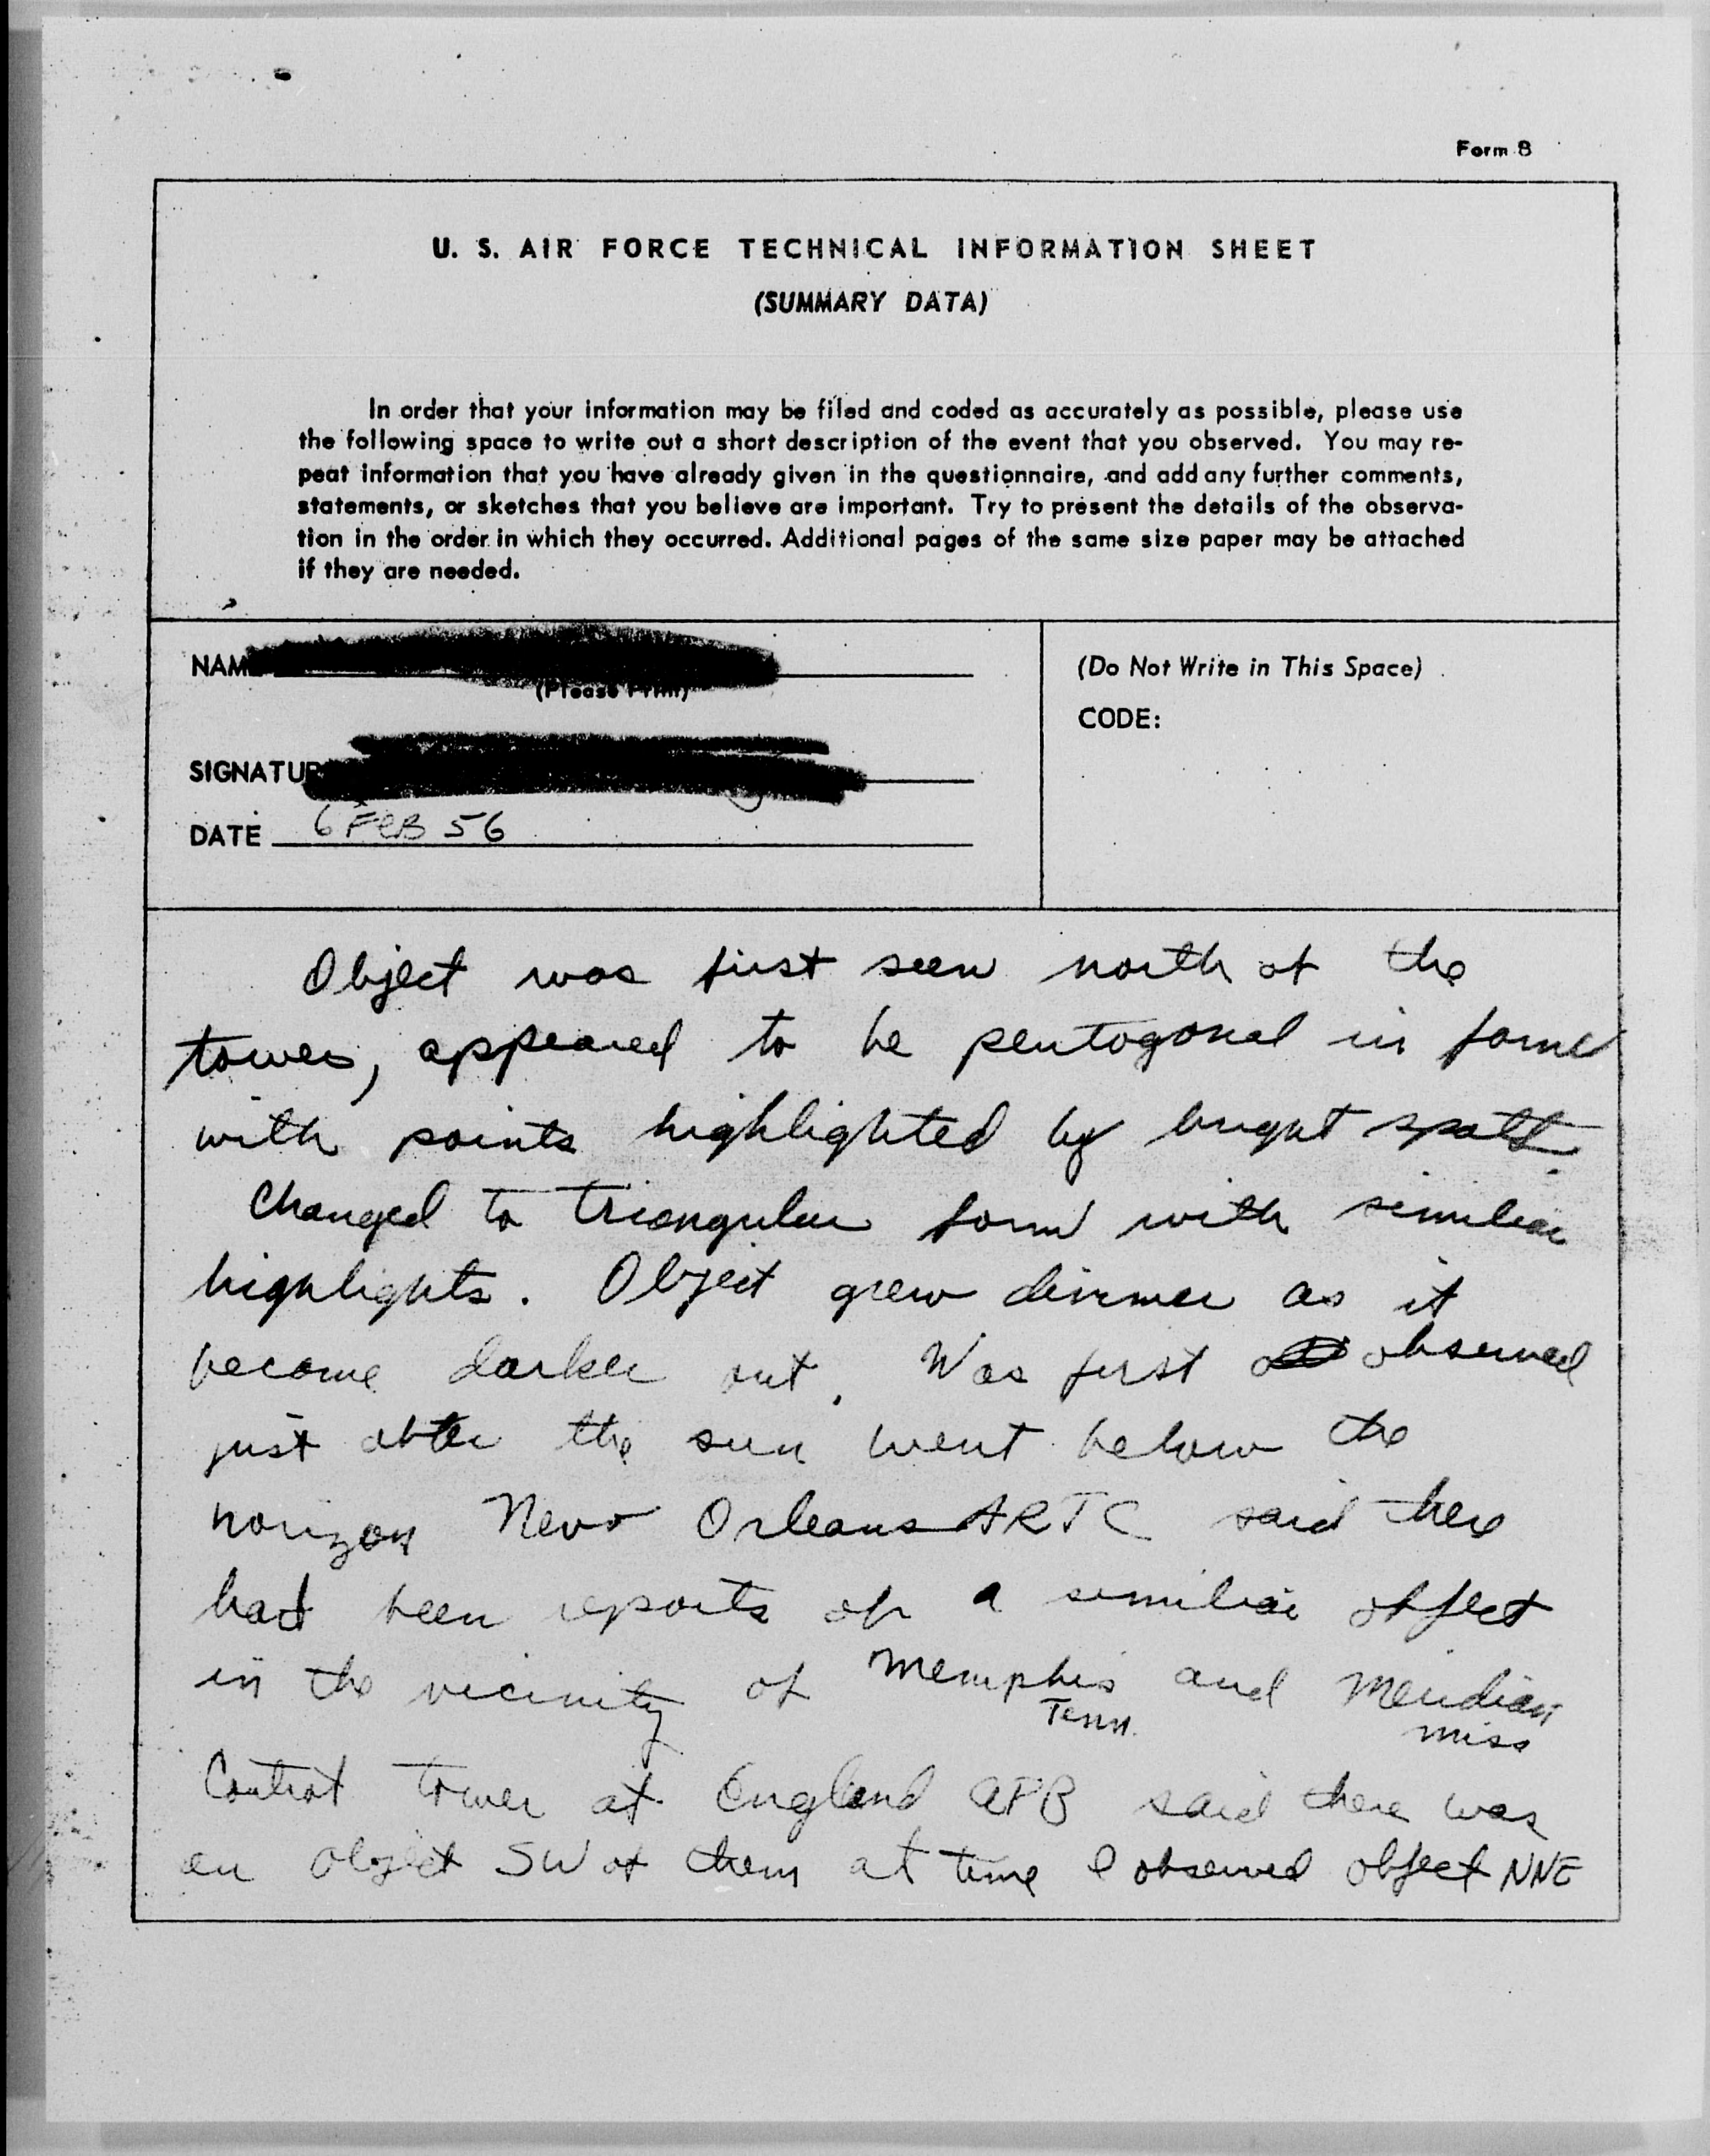 Form 8
U. S. AIR FORCE TECHNICAL INFORMATION SHEET
(SUMMARY DATA)
In order that your information may be filed and coded as accurately as possible, please use
the following space to write out a short description of the event that you observed. You may re-
peat information that you have already given in the questionnaire, and add any further comments,
statements, or sketches that you believe are important. Try to present the details of the observa-
tion in the order in which they occurred. Additional pages of the same size paper may be attached
if they are needed.
NAM
(Please Print)
(Do Not Write in This Space)
CODE:
SIGNATUR
DATE 6 FEB 56
Object was first seen north of the
tower, appeared to be pentagonal in form
with points highlighted by bright spots.
Changed to triangular form with similiar
highlights. Object grew dimmer as it
became darker out. Was first observed
just after the sun went below the
horizon New Orleans ARTC said there
had been reports of a similiar object
in the vicinity of Memphis and Meridian
Tenn. Miss
Control tower at England AFB said there was
an object SW of them at time I observed object NNE